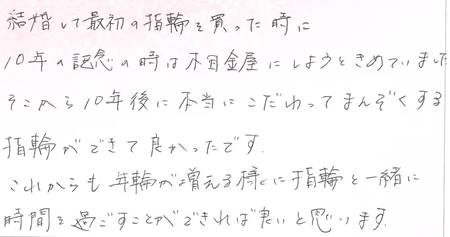 結婚して最初の指輪を買った時に
10年の記念の時は木目金屋にしようときめていました
そこから10年後に本当にこだわってまんぞくする
指輪ができて良かったです.
これからも年輪が増える様に指輪と一緒に
時間を過ごすことができれば良いと思います.